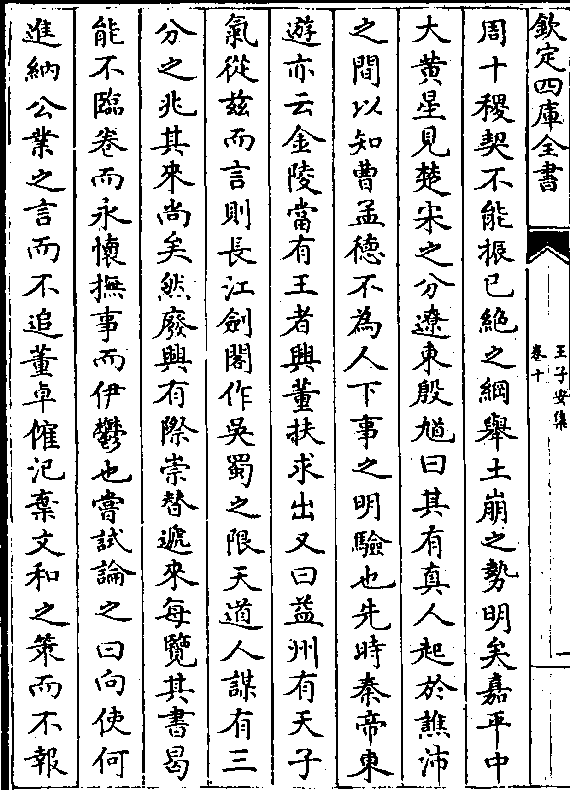 欽定四庫全書
王子安集
卷十
一
周十稷契不能振已絶之綱舉土崩之勢明矣嘉平中
大黄星見楚宋之分遼東殷馗曰其有真人起於譙沛
之間以知曹孟德不為人下事之明驗也先時秦帝東
遊亦云金陵當有王者興董扶求出又曰益州有天子
氣從兹而言則長江劍閣作吳蜀之限天道人謀有三
分之兆其來尚矣然廢興有際崇替遞來每覽其書曷
能不臨卷而永懷撫事而伊鬱也嘗試論之曰向使何
進納公業之言而不追董卓傕汜棄文和之策而不報